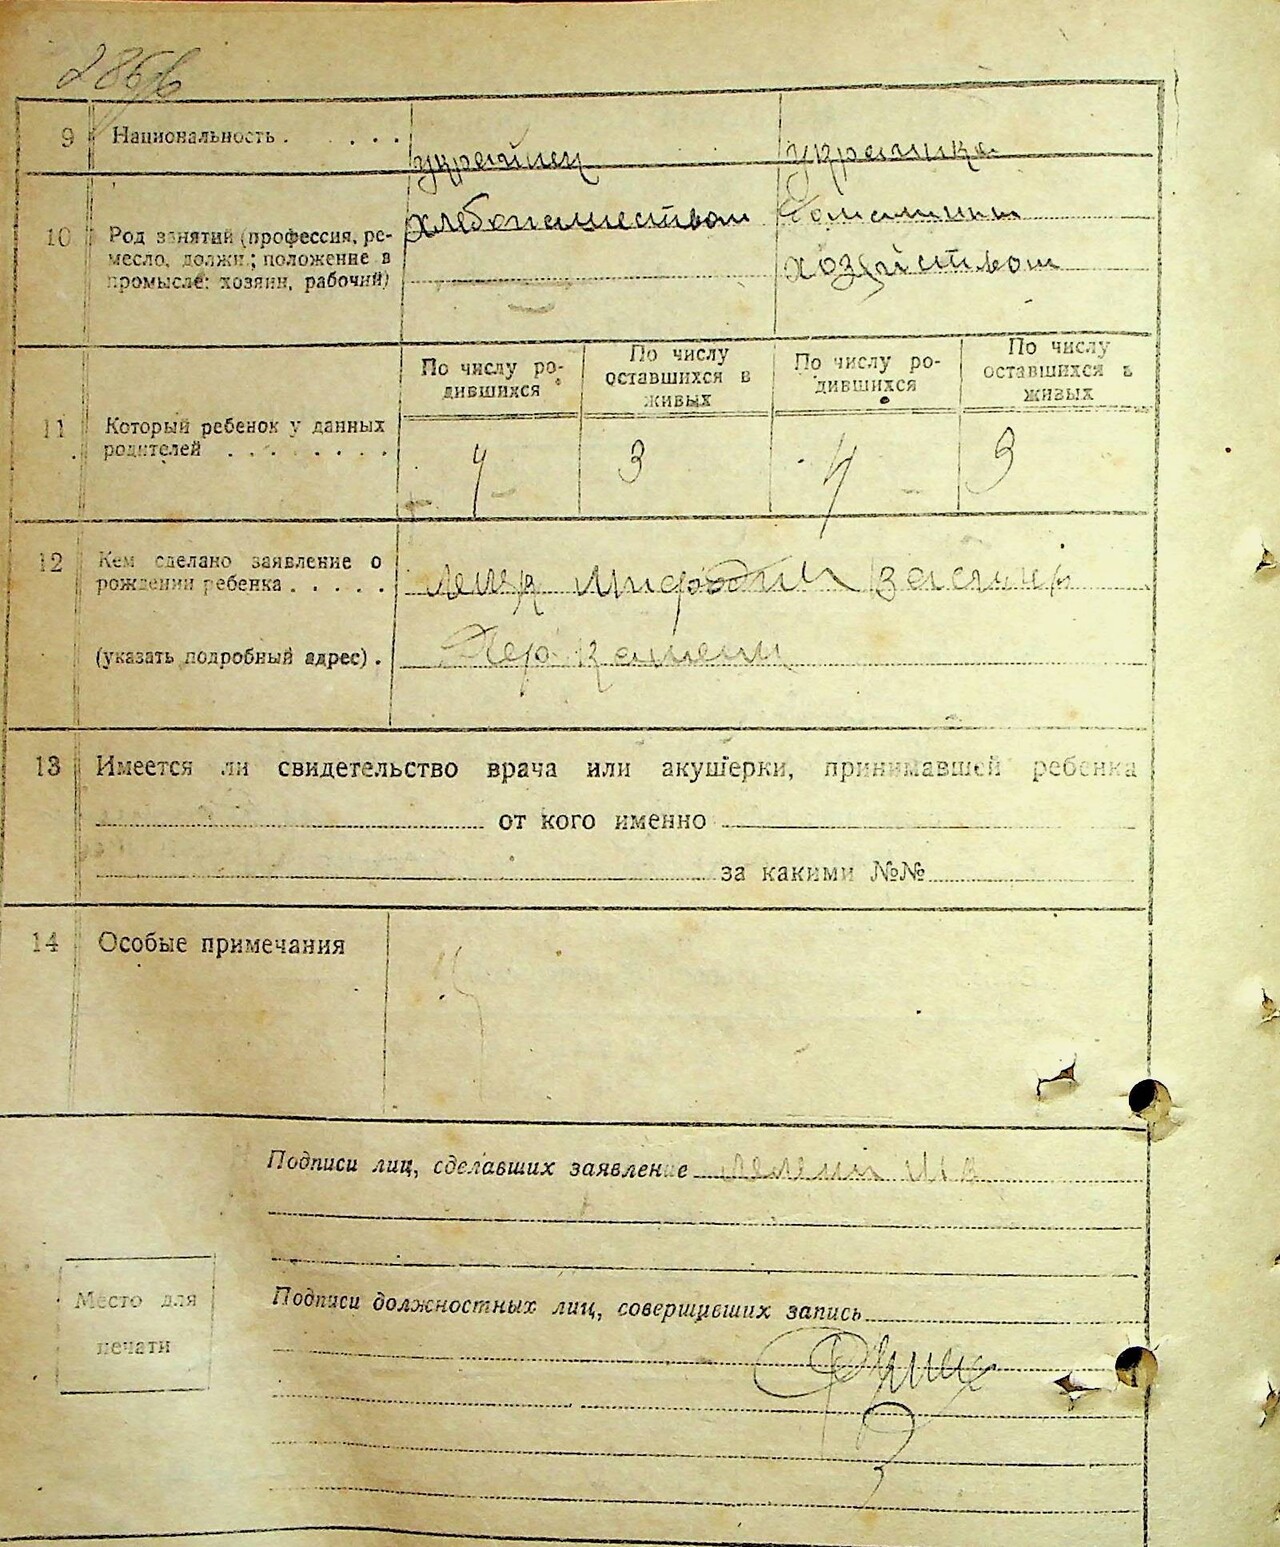 286/в
9 Национальность . . . . украинец украинка
10 Род занятий (профессия, ре-
месло, должн.; положение в
промысле: хозяин, рабочий)
хлебопашеством домашним
хозяйством
11 Который ребенок у данных
родителей . . . . . . . .
По числу ро-
дившихся
По числу
оставшихся в
живых
По числу ро-
дившихся
По числу
оставшихся в
живых
4 3 4 3
12 Кем сделано заявление о
рождении ребенка . . . . .
(указать подробный адрес) .
13 Имеется ли свидетельство врача или акушерки, принимавшей ребенка
от кого именно
за какими №№
14 Особые примечания
Подписи лиц, сделавших заявление
Место для
печати
Подписи должностных лиц, совершивших запись